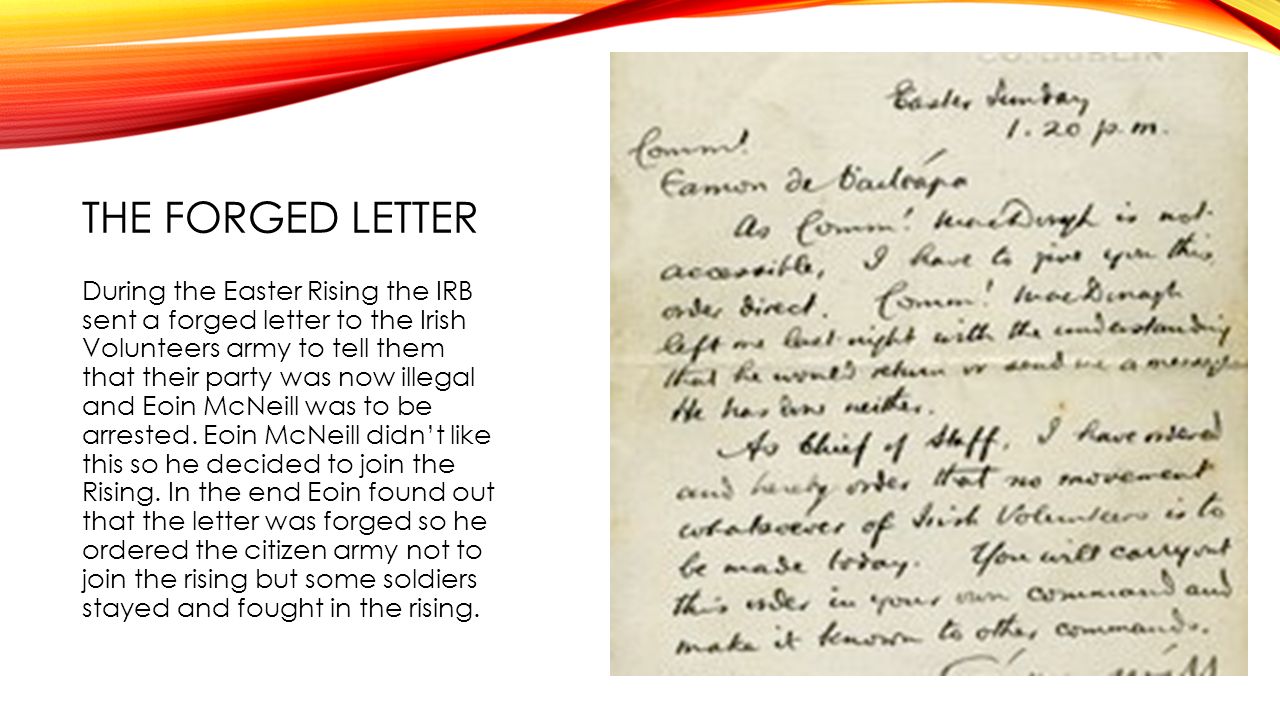 THE FORGED LETTER
During the Easter Rising the IRB
sent a forged letter to the Irish
Volunteers army to tell them
that their party was now illegal
and Eoin McNeill was to be
arrested. Eoin McNeill didn't like
this so he decided to join the
Rising. In the end Eoin found out
that the letter was forged so he
ordered the citizen army not to
join the rising but some soldiers
stayed and fought in the rising.
CO. DUBLIN.
Easter Sunday
1.20 p.m.
Comm!
Eamon de
As Comm! MacDonagh is not
accessible, I have to give you this
order direct. Comm! MacDonagh
left me last night with the understanding
that he would return or send me a message
He has done neither.
As Chief of Staff, I have ordered
and hereby order that no movement
whatsoever of Irish Volunteers is to
be made today. You will carry out
this order in your own command and
make it known to other commands.